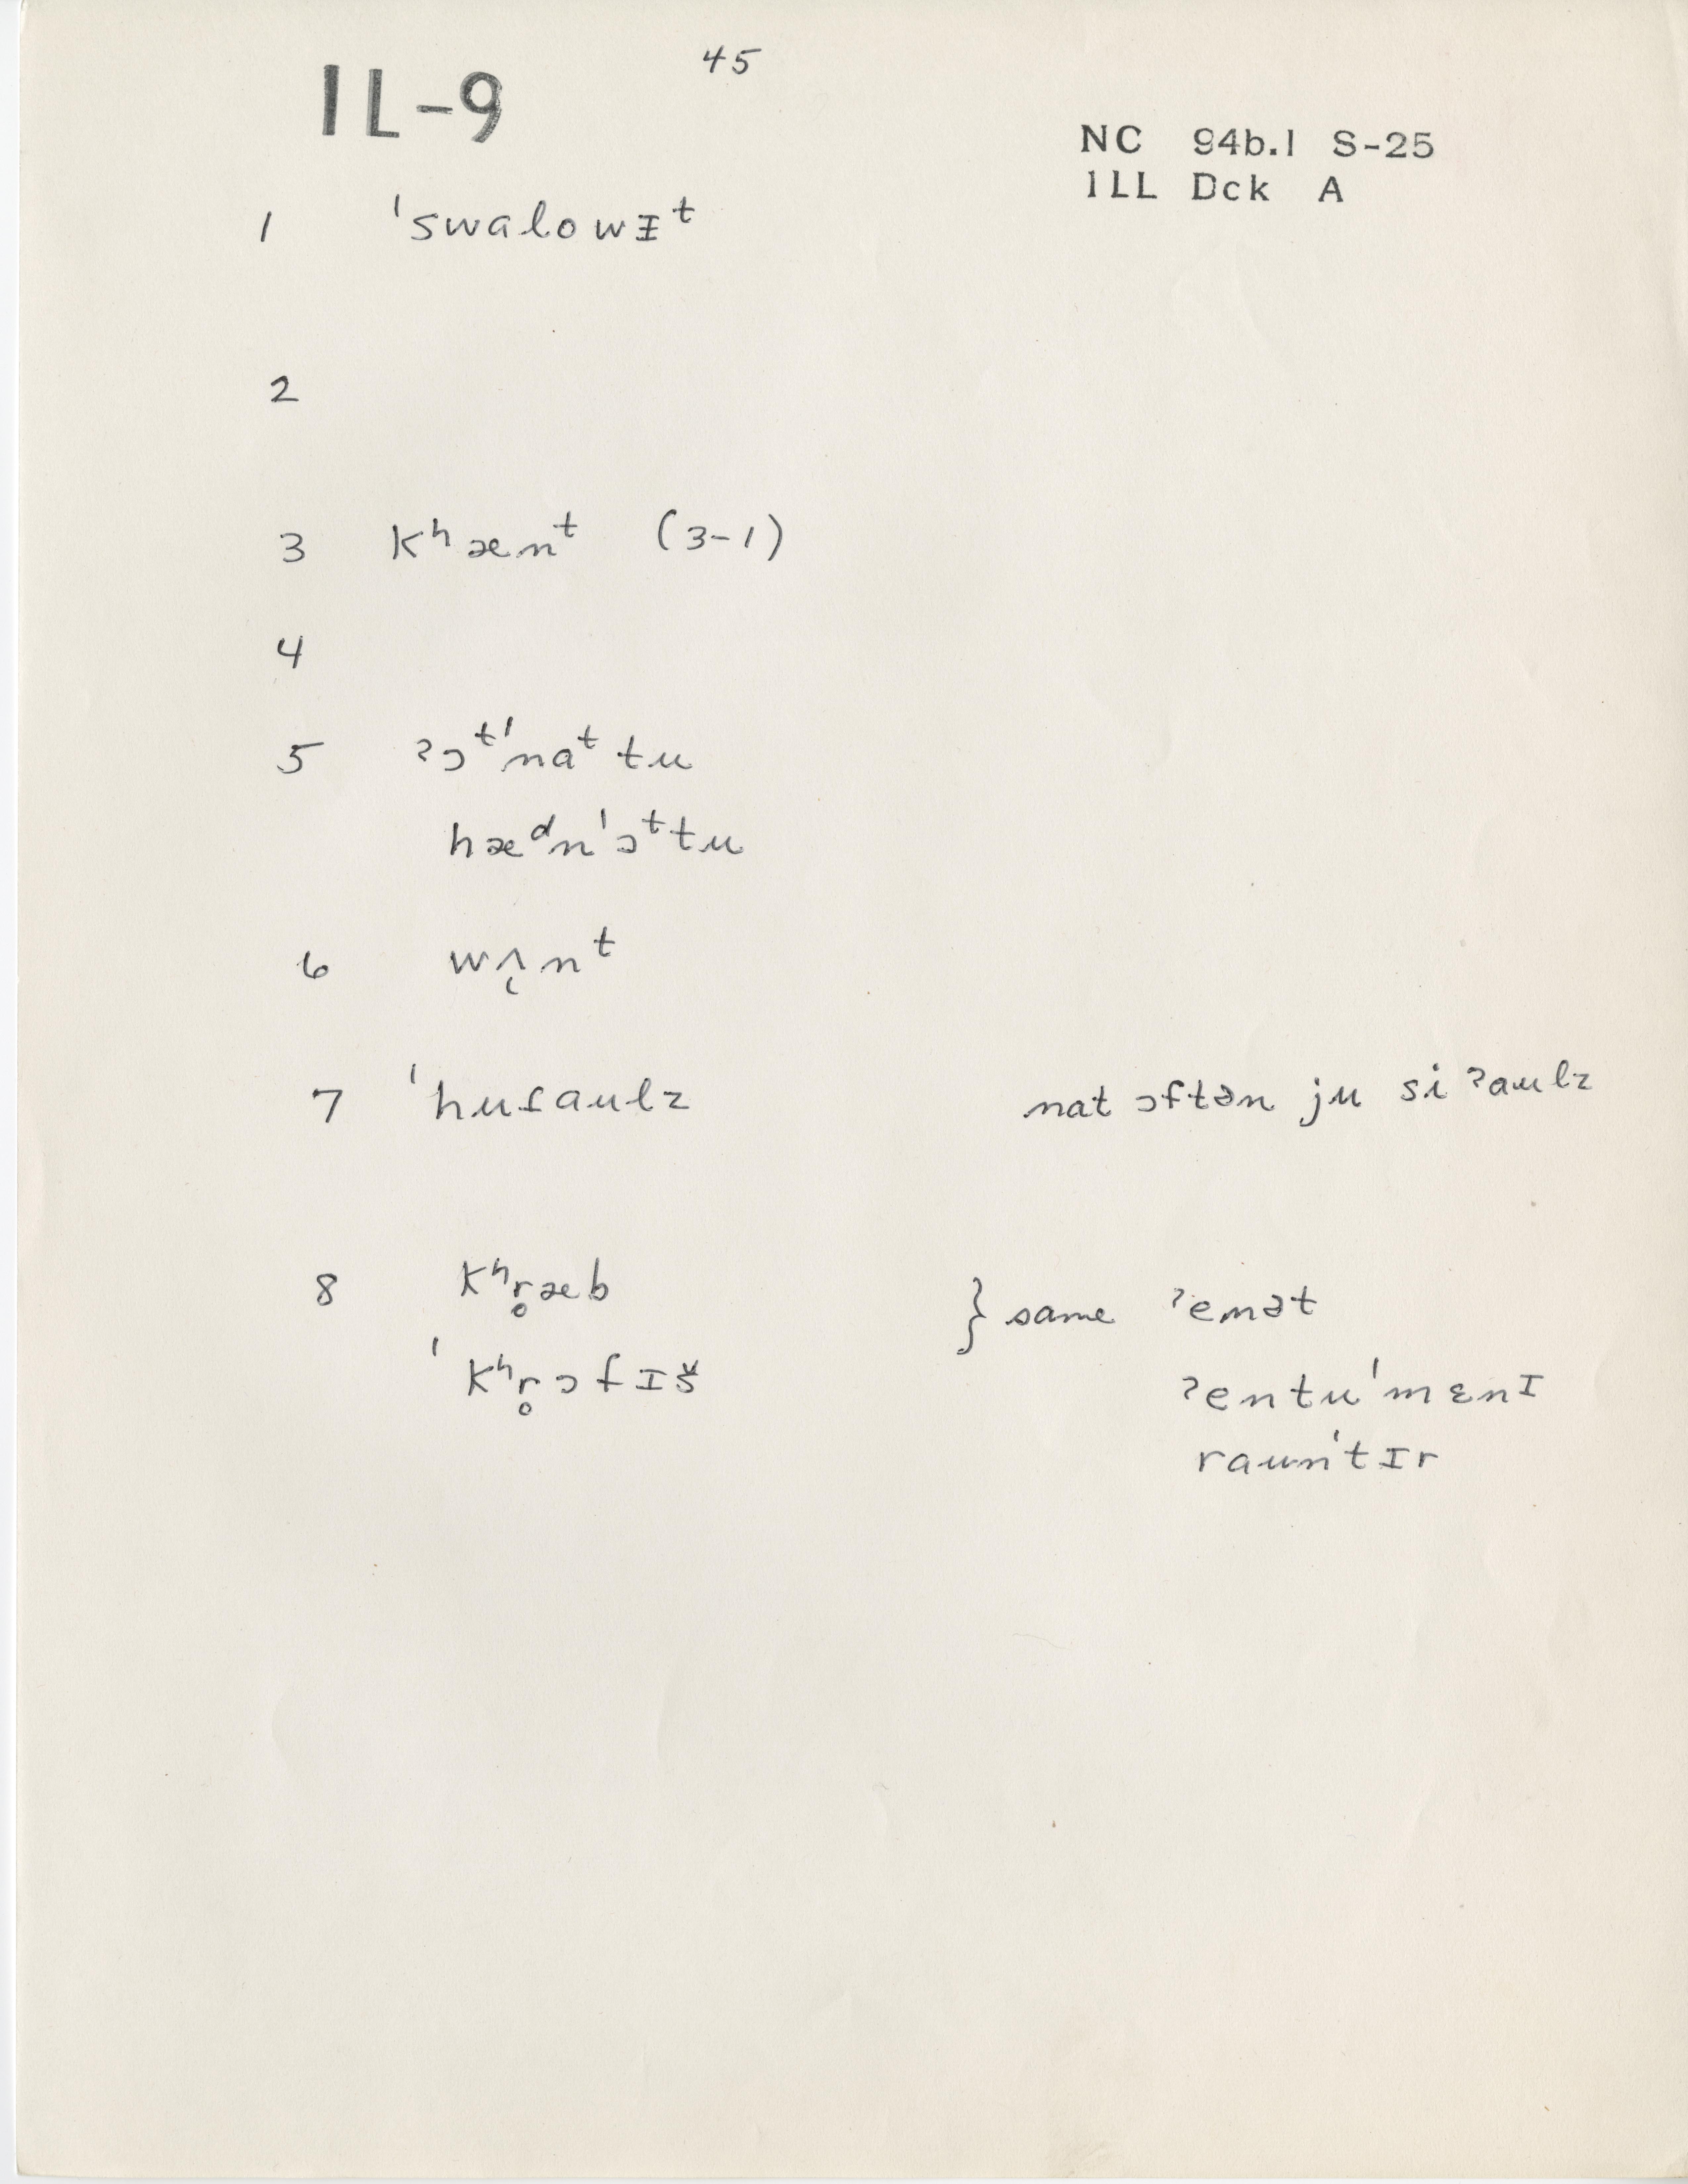 45
IL-9
NC 94b.1 S-25
ILL Dck A
1 ˈswalowɪᵗ
2
3 Kʰænᵗ (3-1)
4
5 ʔɔᵗˈnaᵗ tu
hæᵈnˈɔᵗtu
6 wʌ̨nᵗ
7 ˈhufaulz nat ɔftən ju si ʔaulz
8 Kʰr̥æb } same ʔenət
ˈKʰr̥ɔfɪš ʔentuˈmɛnɪ
raunˈtɪr